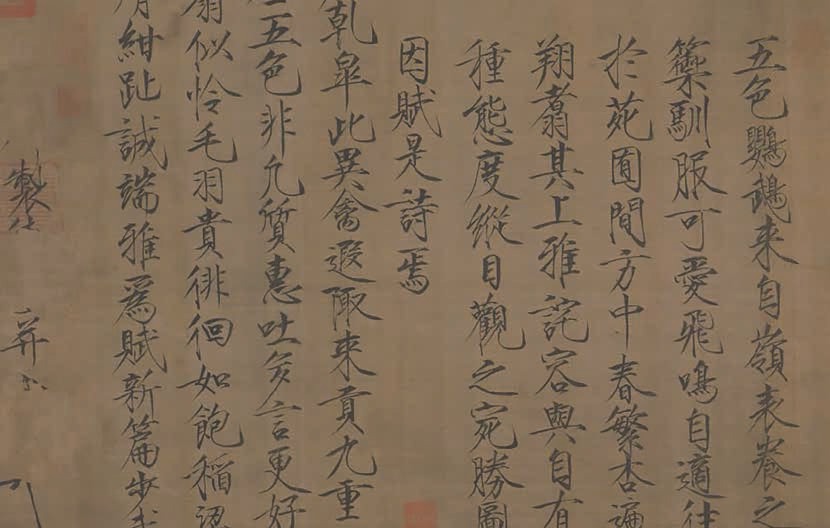 五色鸚鵡来自嶺表養之
籞馴服可愛飛鳴自適往
於苑囿間方中春繁杏遍
翔翥其上雅詫容與自有
種態度縱目觀之宛勝圖
因賦是詩焉
乾皐此異禽遐陬来貢九重
五色非凡質惠吐多言更好
翥似憐毛羽貴徘徊如飽稻
膺紺趾誠端雅爲賦新篇步
製
并